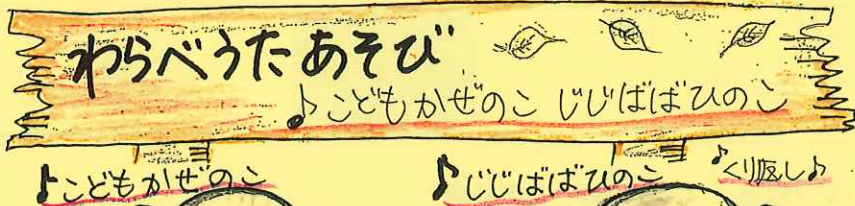 わらべうたあそび
♪こどもかぜのこ じじばばひのこ
♪こどもかぜのこ
♪じじばばひのこ
♪くり返し♪